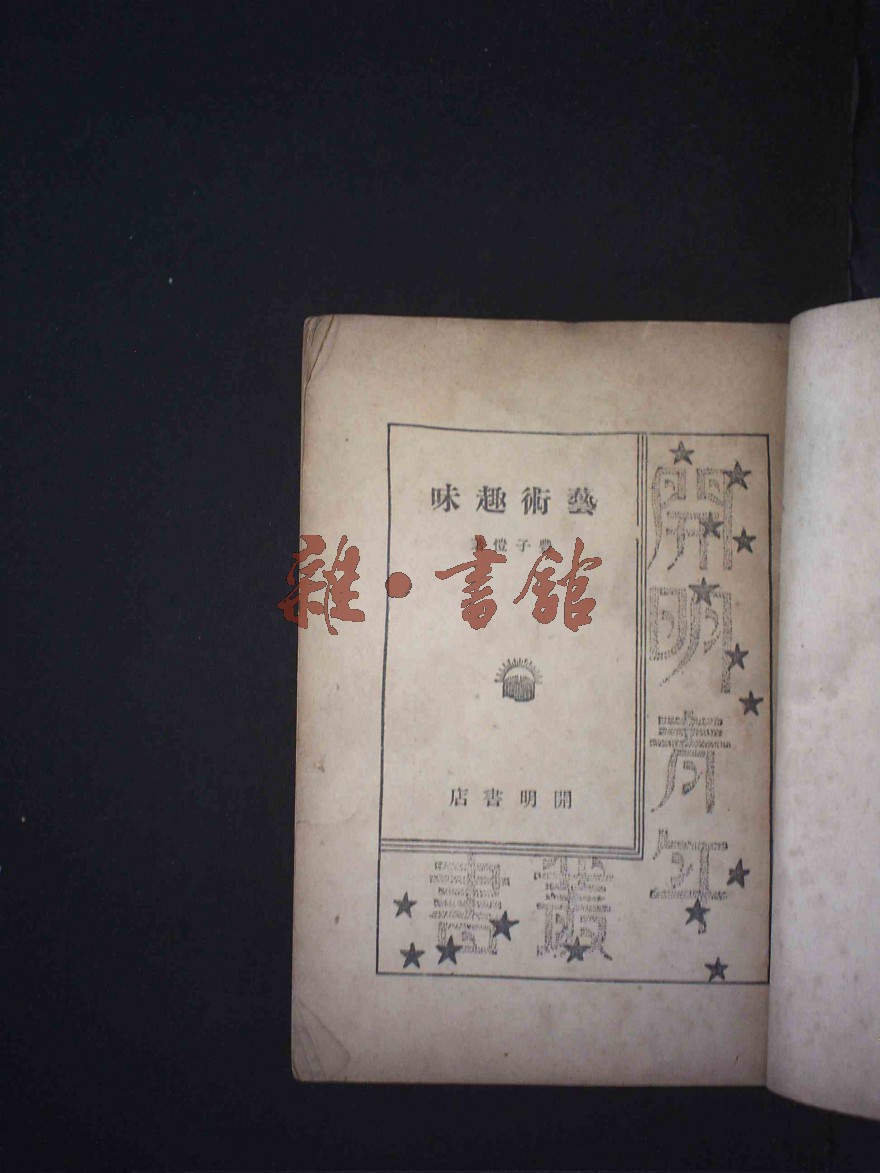 藝術趣味
豐子愷著
開明書店
開明青年
叢書
雜·書館